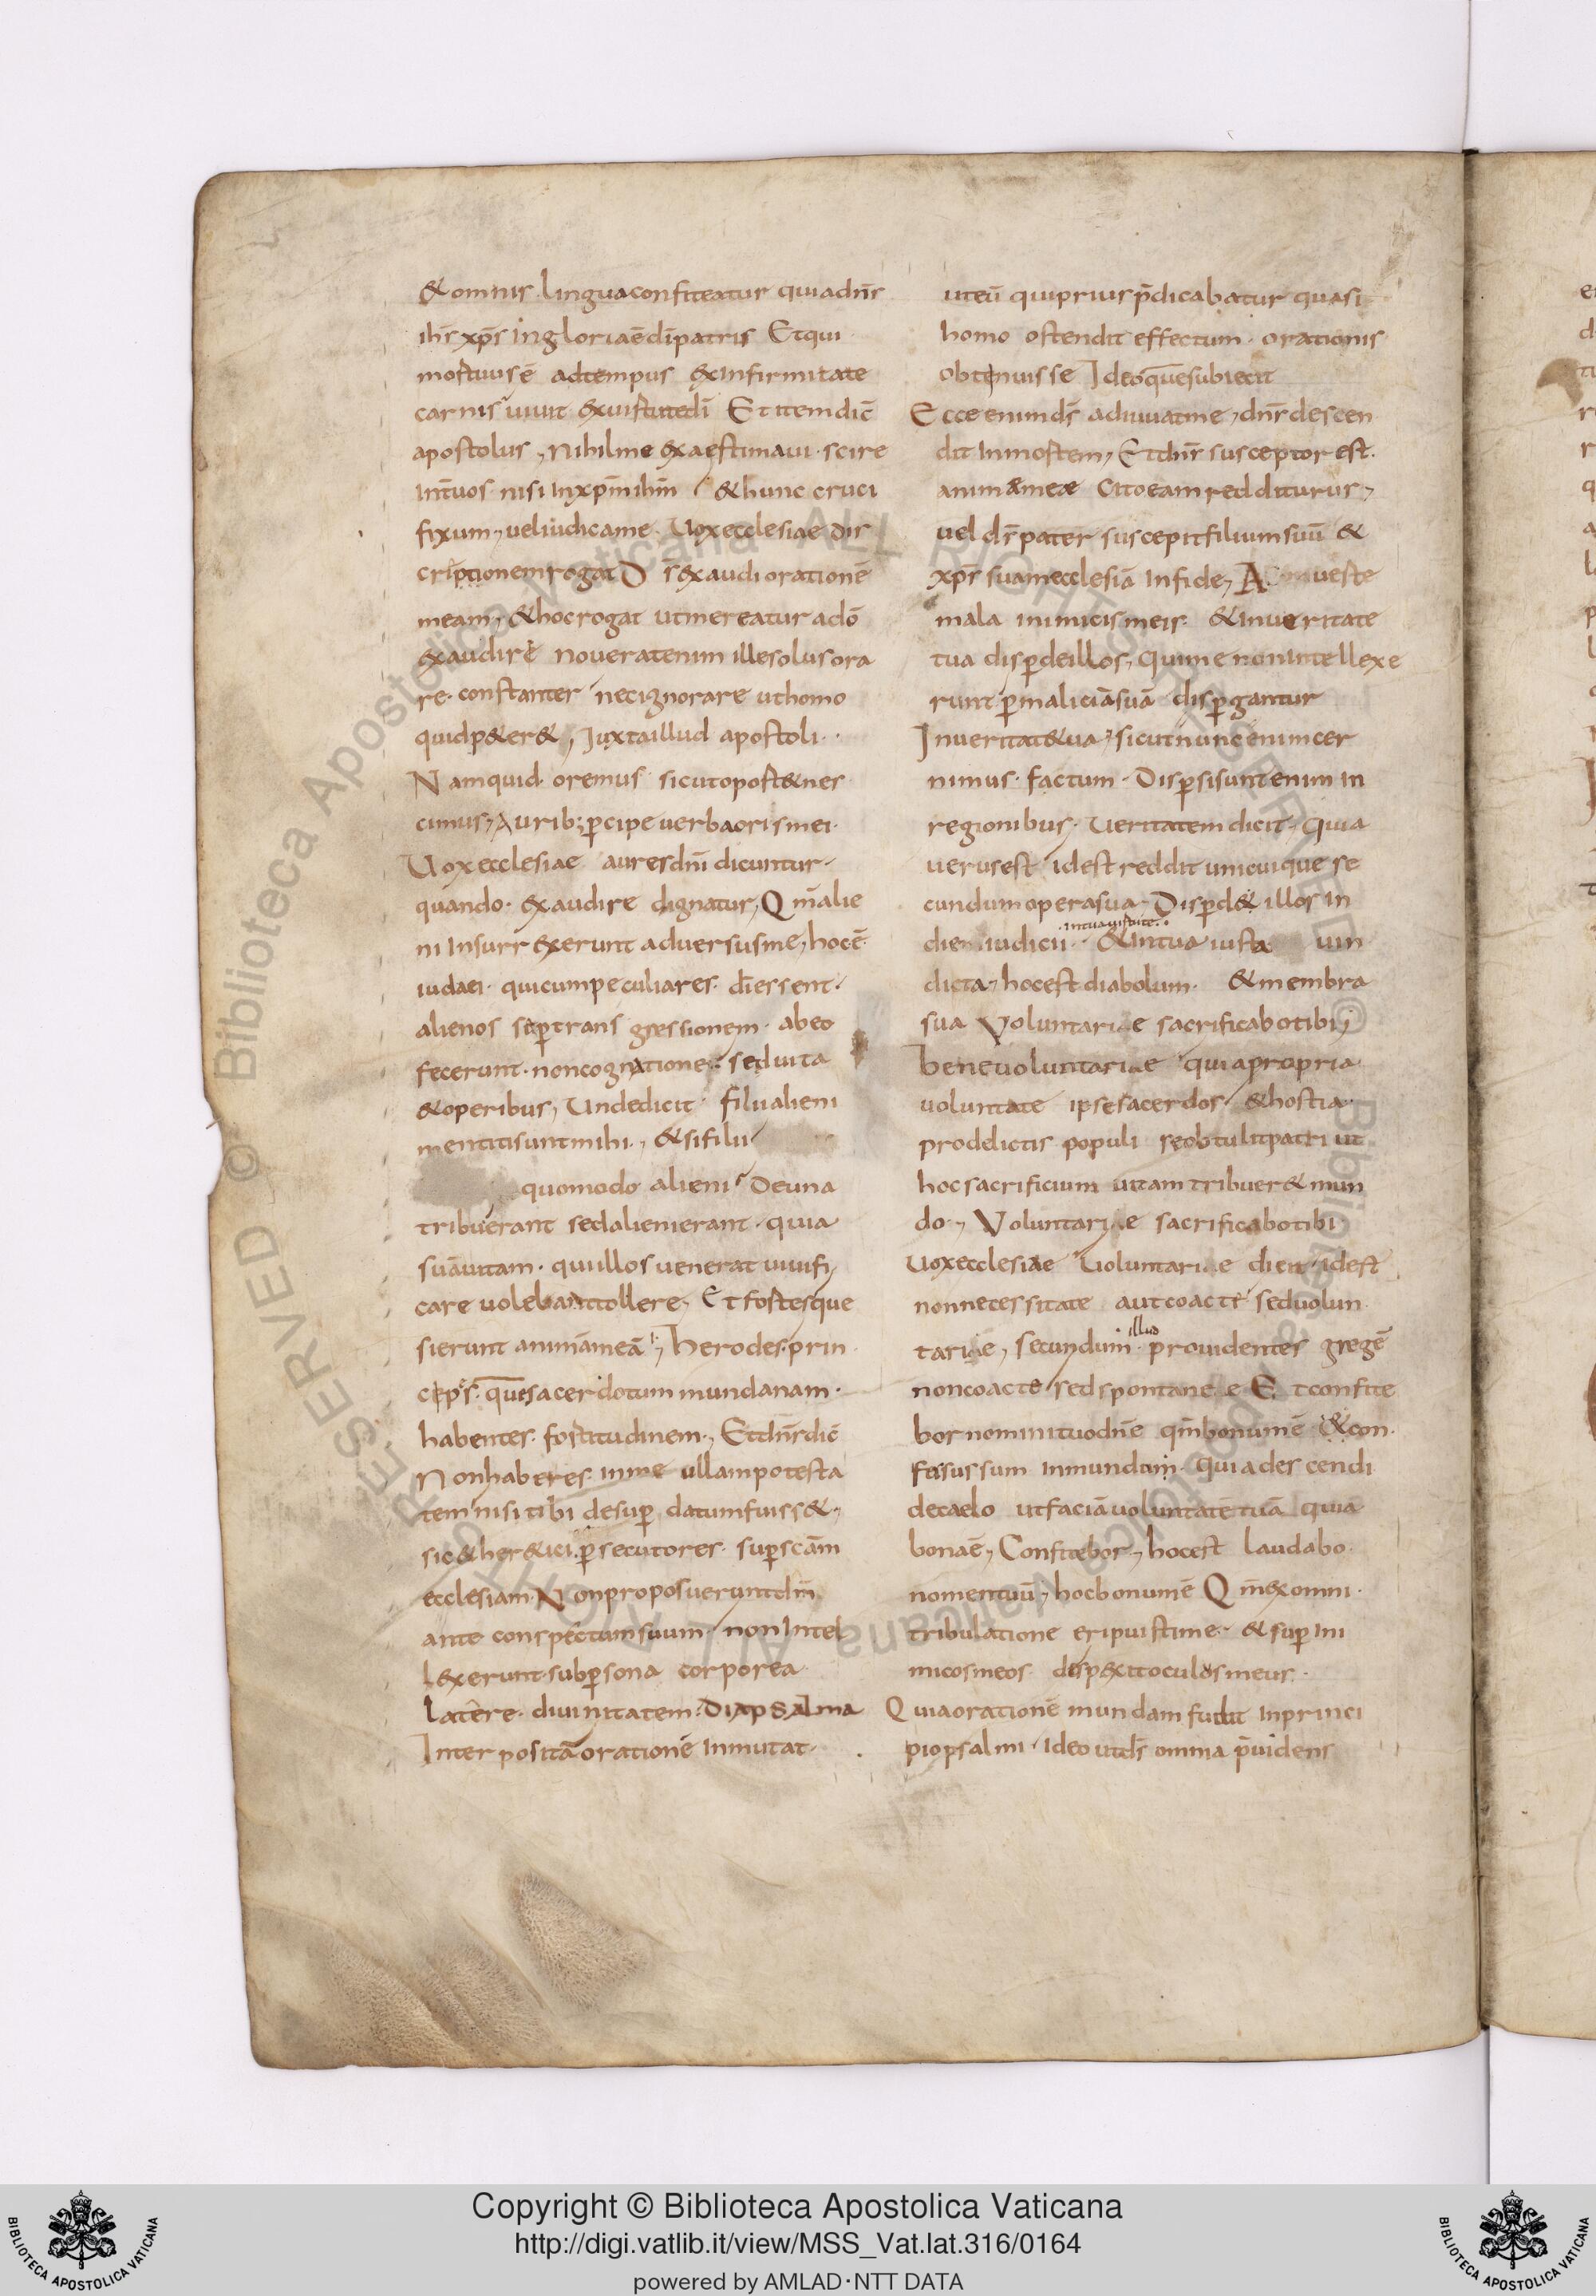 & omnis lingua confiteatur quia dn̄s
ihs̄ xp̄s in gloria ē dī patris Et qui
mortuus ē ad tempus ex infirmitate
carnis uiuit ex uirtute dī Et item dic̄
apostolus, Nihil me exaestimaui scire
inter uos nisi in xpm̄ ihm̄ & hunc cruci
fixum, uel iudica me Uox ecclesiae dis
criptionem rogat Ds̄ exaudi orationē
meam, & hoc rogat ut mereatur a dō
exaudire nouerat enim ille solus ora
re constanter nec ignorare ut homo
quid p&er&, Iuxta illud apostoli
Nam quid oremus sicut oport& nes
cimus, Aurib; p̄cipe uerba oris mei
Uox ecclesiae aures dnī dicuntur
quando exaudire dignatur, Qm̄ alie
ni insurrexerunt aduersus me, hoc ē
iudaei qui cum peculiares dī essent
alienos se p̱ transgressionem ab eo
fecerunt non cognatione sed uita
& operibus, Unde dicit filii alieni
mentiti sunt mihi, & si filii
quomodo alieni De una
tribu erant sed alieni erant quia
suā uitam qui illos uenerat uiuifi
care uolebant tollere, Et fortes que
sierunt animā meā, Herodes prin
ceps que sacerdotum mundanam
habentes fortitudinem, Et dn̄s dic̄
Non haberes in me ullam potesta
tem nisi tibi desup̱ datum fuiss&,
sic & her&ici p̱secutores sup̱ scām
ecclesiam Non proposuerunt dm̄
ante conspectum suum non intel
lexerunt sub p̱sona corporea
latere diuinitatem Diapsalma
Interpositā orationē inmutat
ut eū qui prius p̄dicabatur quasi
homo ostendit effectum orationis
obtenuisse Ideoque subiecit
Ecce enim ds̄ adiuuat me, dn̄s descen
dit in mortem, Et dn̄s susceptor est
animae meae Cito eam redditurus,
uel ds̄ pater suscepit filium suū &
xp̄s suam ecclesiā in fide, A uerte
mala inimicis meis & in ueritate
tua disp̱de illos, Qui me non intellexe
runt p̱ maliciā suā disp̱gantur
In ueritate tua, sicut nunc enim cer
nimus factum Disp̱si sunt enim in
regionibus Ueritatem dicit quia
uerus est id est reddit unicuique se
cundum opera sua Disp̱d& illos in
in tua uirtute
die iudicii & in tua iusta uin
dicta, hoc est diabolum & membra
sua Voluntariae sacrificabo tibi
bene uoluntariae quia propria
uoluntate ipse sacerdos & hostia
pro delictis populi se obtulit patri ut
hoc sacrificium uitam tribuer& mun
do, Voluntariae sacrificabo tibi
Uox ecclesiae uoluntariae dicit id est
non necessitate aut coacte sed uolun
illud
tariae, secundum prouidentes gregē
non coacte sed spontanee Et confite
bor nomini tuo dn̄e qm̄ bonum ē & con
fessus sum in mundum quia descendi
de caelo ut faciā uoluntatē tuā quia
bona ē, Confitebor, hoc est laudabo
nomen tuū, hoc bonum ē Qm̄ ex omni
tribulatione eripuisti me & sup̱ ini
micos meos despexit oculus meus
Quia orationē mundam fudit in princi
pio psalmi Ideo ut ds̄ omnia p̄uidens
Copyright © Biblioteca Apostolica Vaticana
http://digi.vatlib.it/view/MSS_Vat.lat.316/0164
powered by AMLAD・NTT DATA